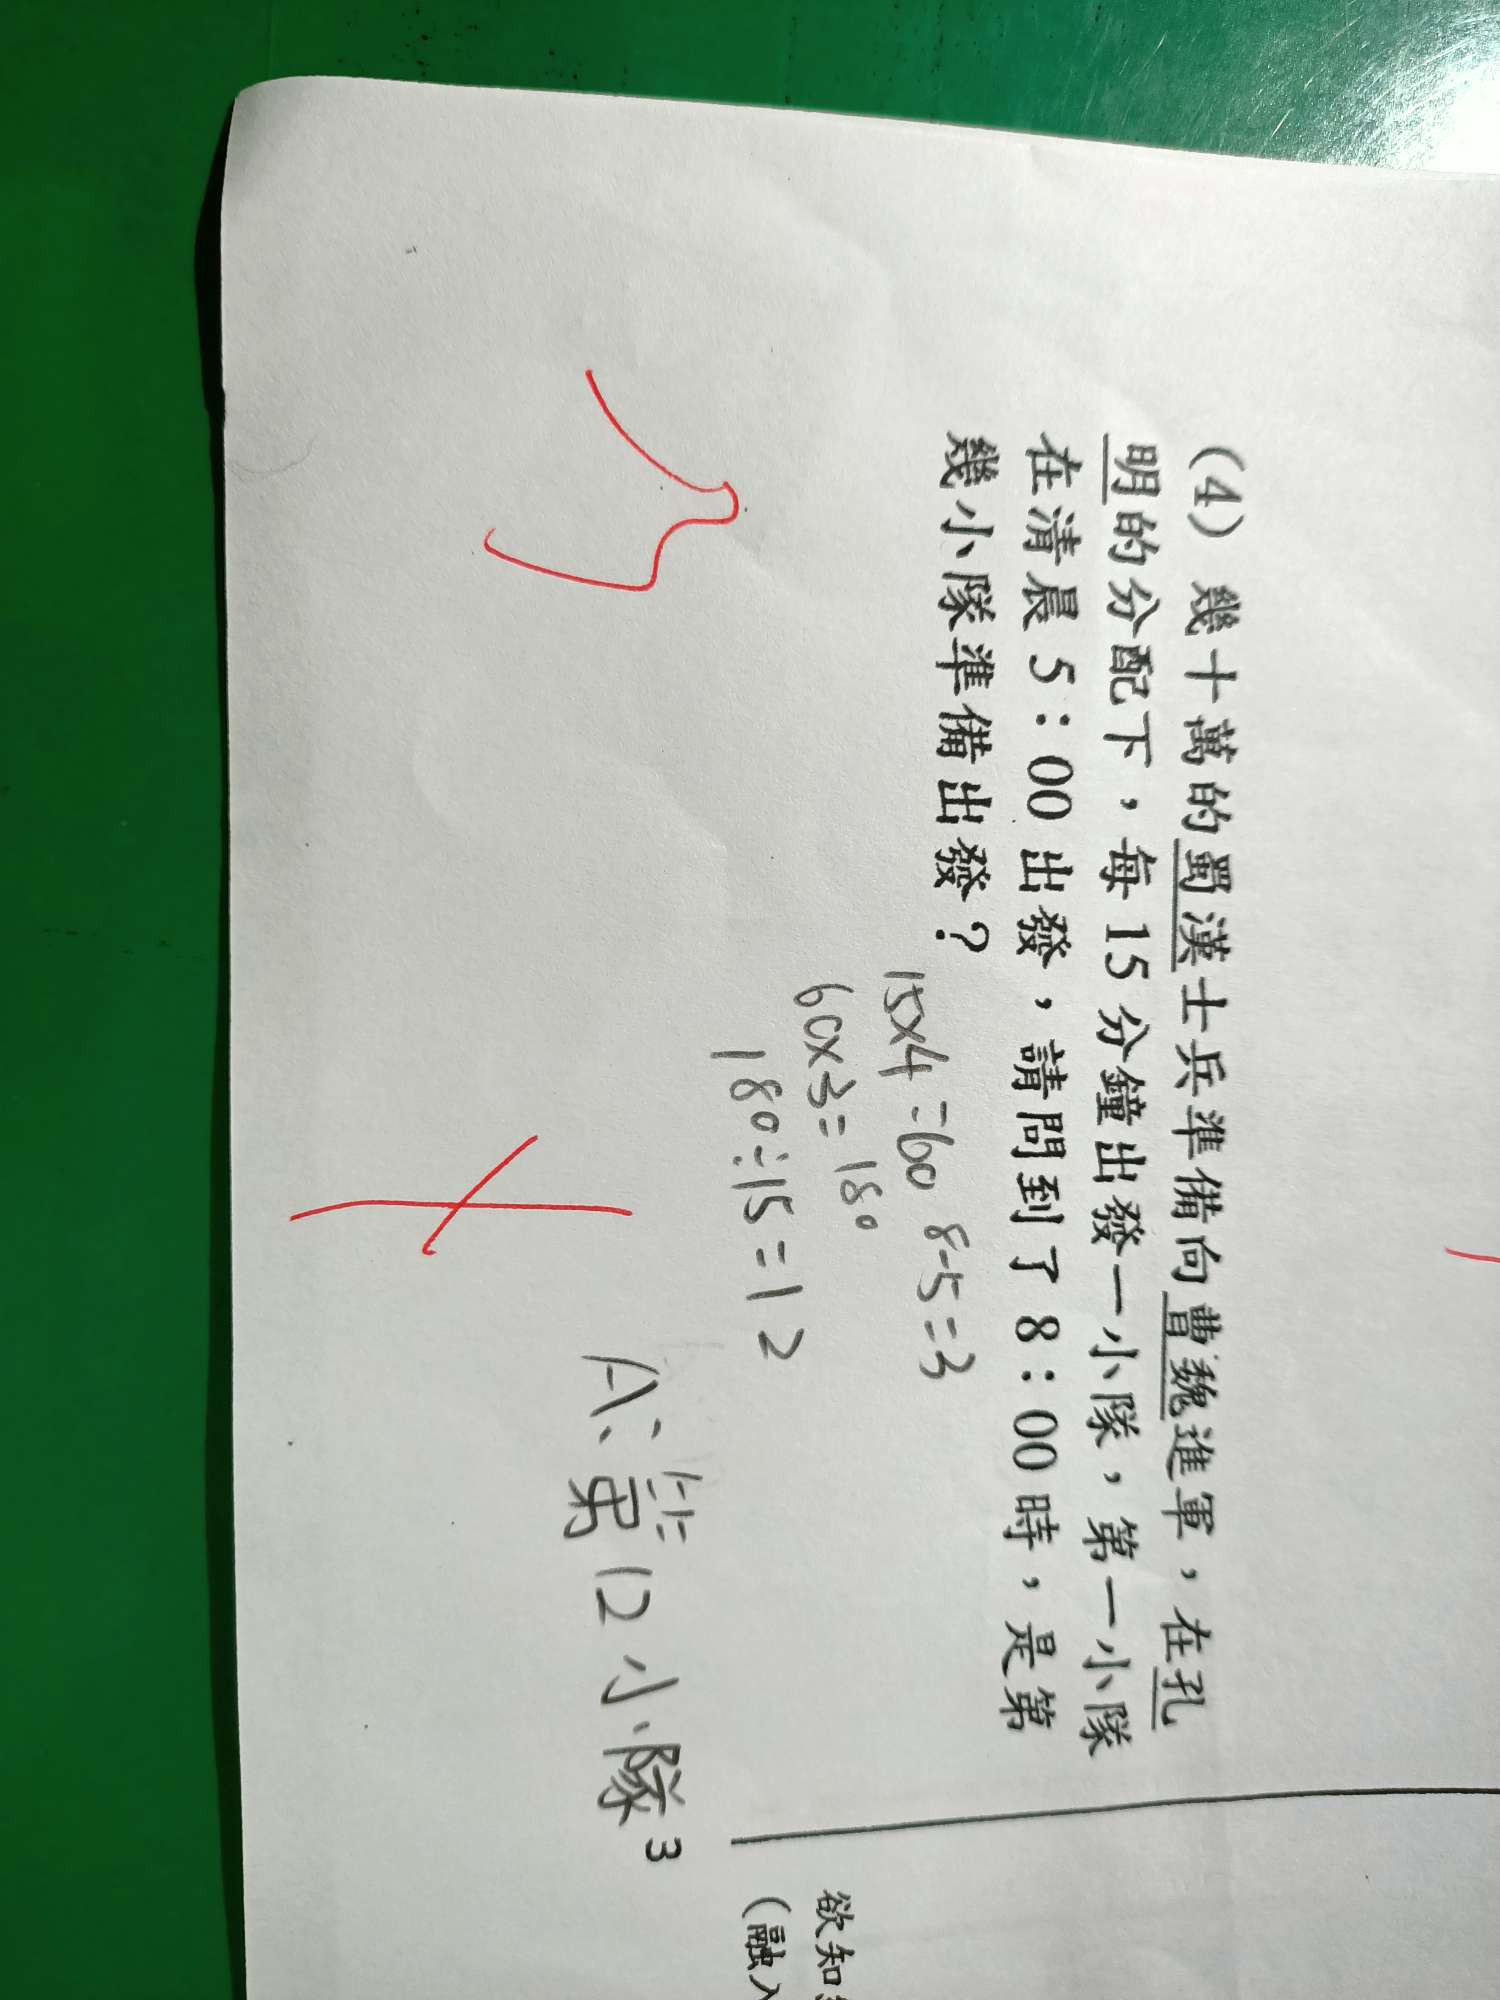 (4) 幾十萬的蜀漢士兵準備向曹魏進軍，在孔
明的分配下，每15分鐘出發一小隊，第一小隊
在清晨5：00出發，請問到了8：00時，是第
幾小隊準備出發？
15×4=60 8-5=3
60×3=180
180÷15=12
A：第12小隊
3
欲知
(融入